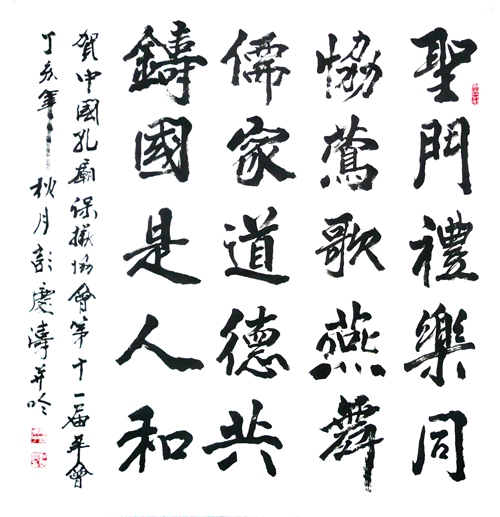 聖門禮樂同
協鶯歌燕舞
儒家道德共
鑄國是人和
賀中國孔廟保護協會第十一届年會
丁亥年秋月彭慶濤并吟